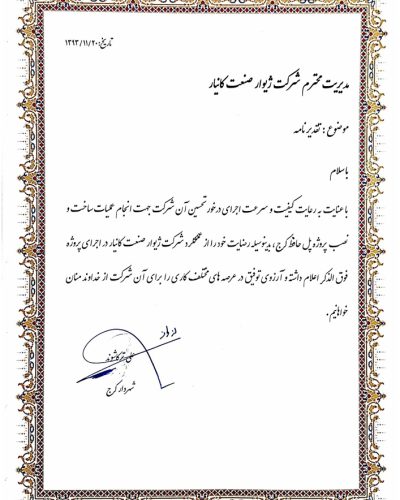 تاریخ: ۱۳۹۳/۱۱/۲۰
مدیریت محترم شرکت ژیوار صنعت کانیار
موضوع : تقدیرنامه
باسلام
با عنایت به رعایت کیفیت و سرعت اجرای درخور تحسین آن شرکت جهت انجام عملیات ساخت و
نصب پروژه پل حافظ کرج ، بدینوسیله رضایت خود را از عملکرد شرکت ژیوار صنعت کانیار در اجرای پروژه
فوق الذکر اعلام داشته و آرزوی توفیق در عرصه های مختلف کاری را برای آن شرکت از خداوند منان
خواهانیم .
علی ترکاشوند
شهردار کرج